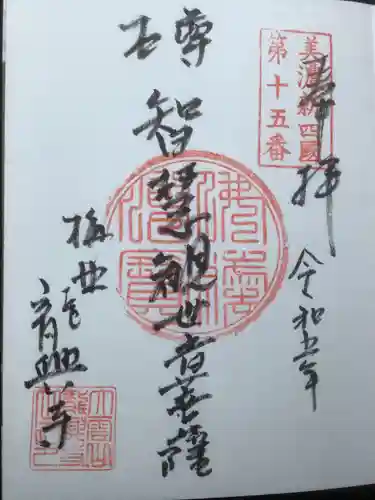 美濃新四國
第十五番
奉拝
令和五年
本尊
智慧観世音菩薩
佛法僧寶
興寺